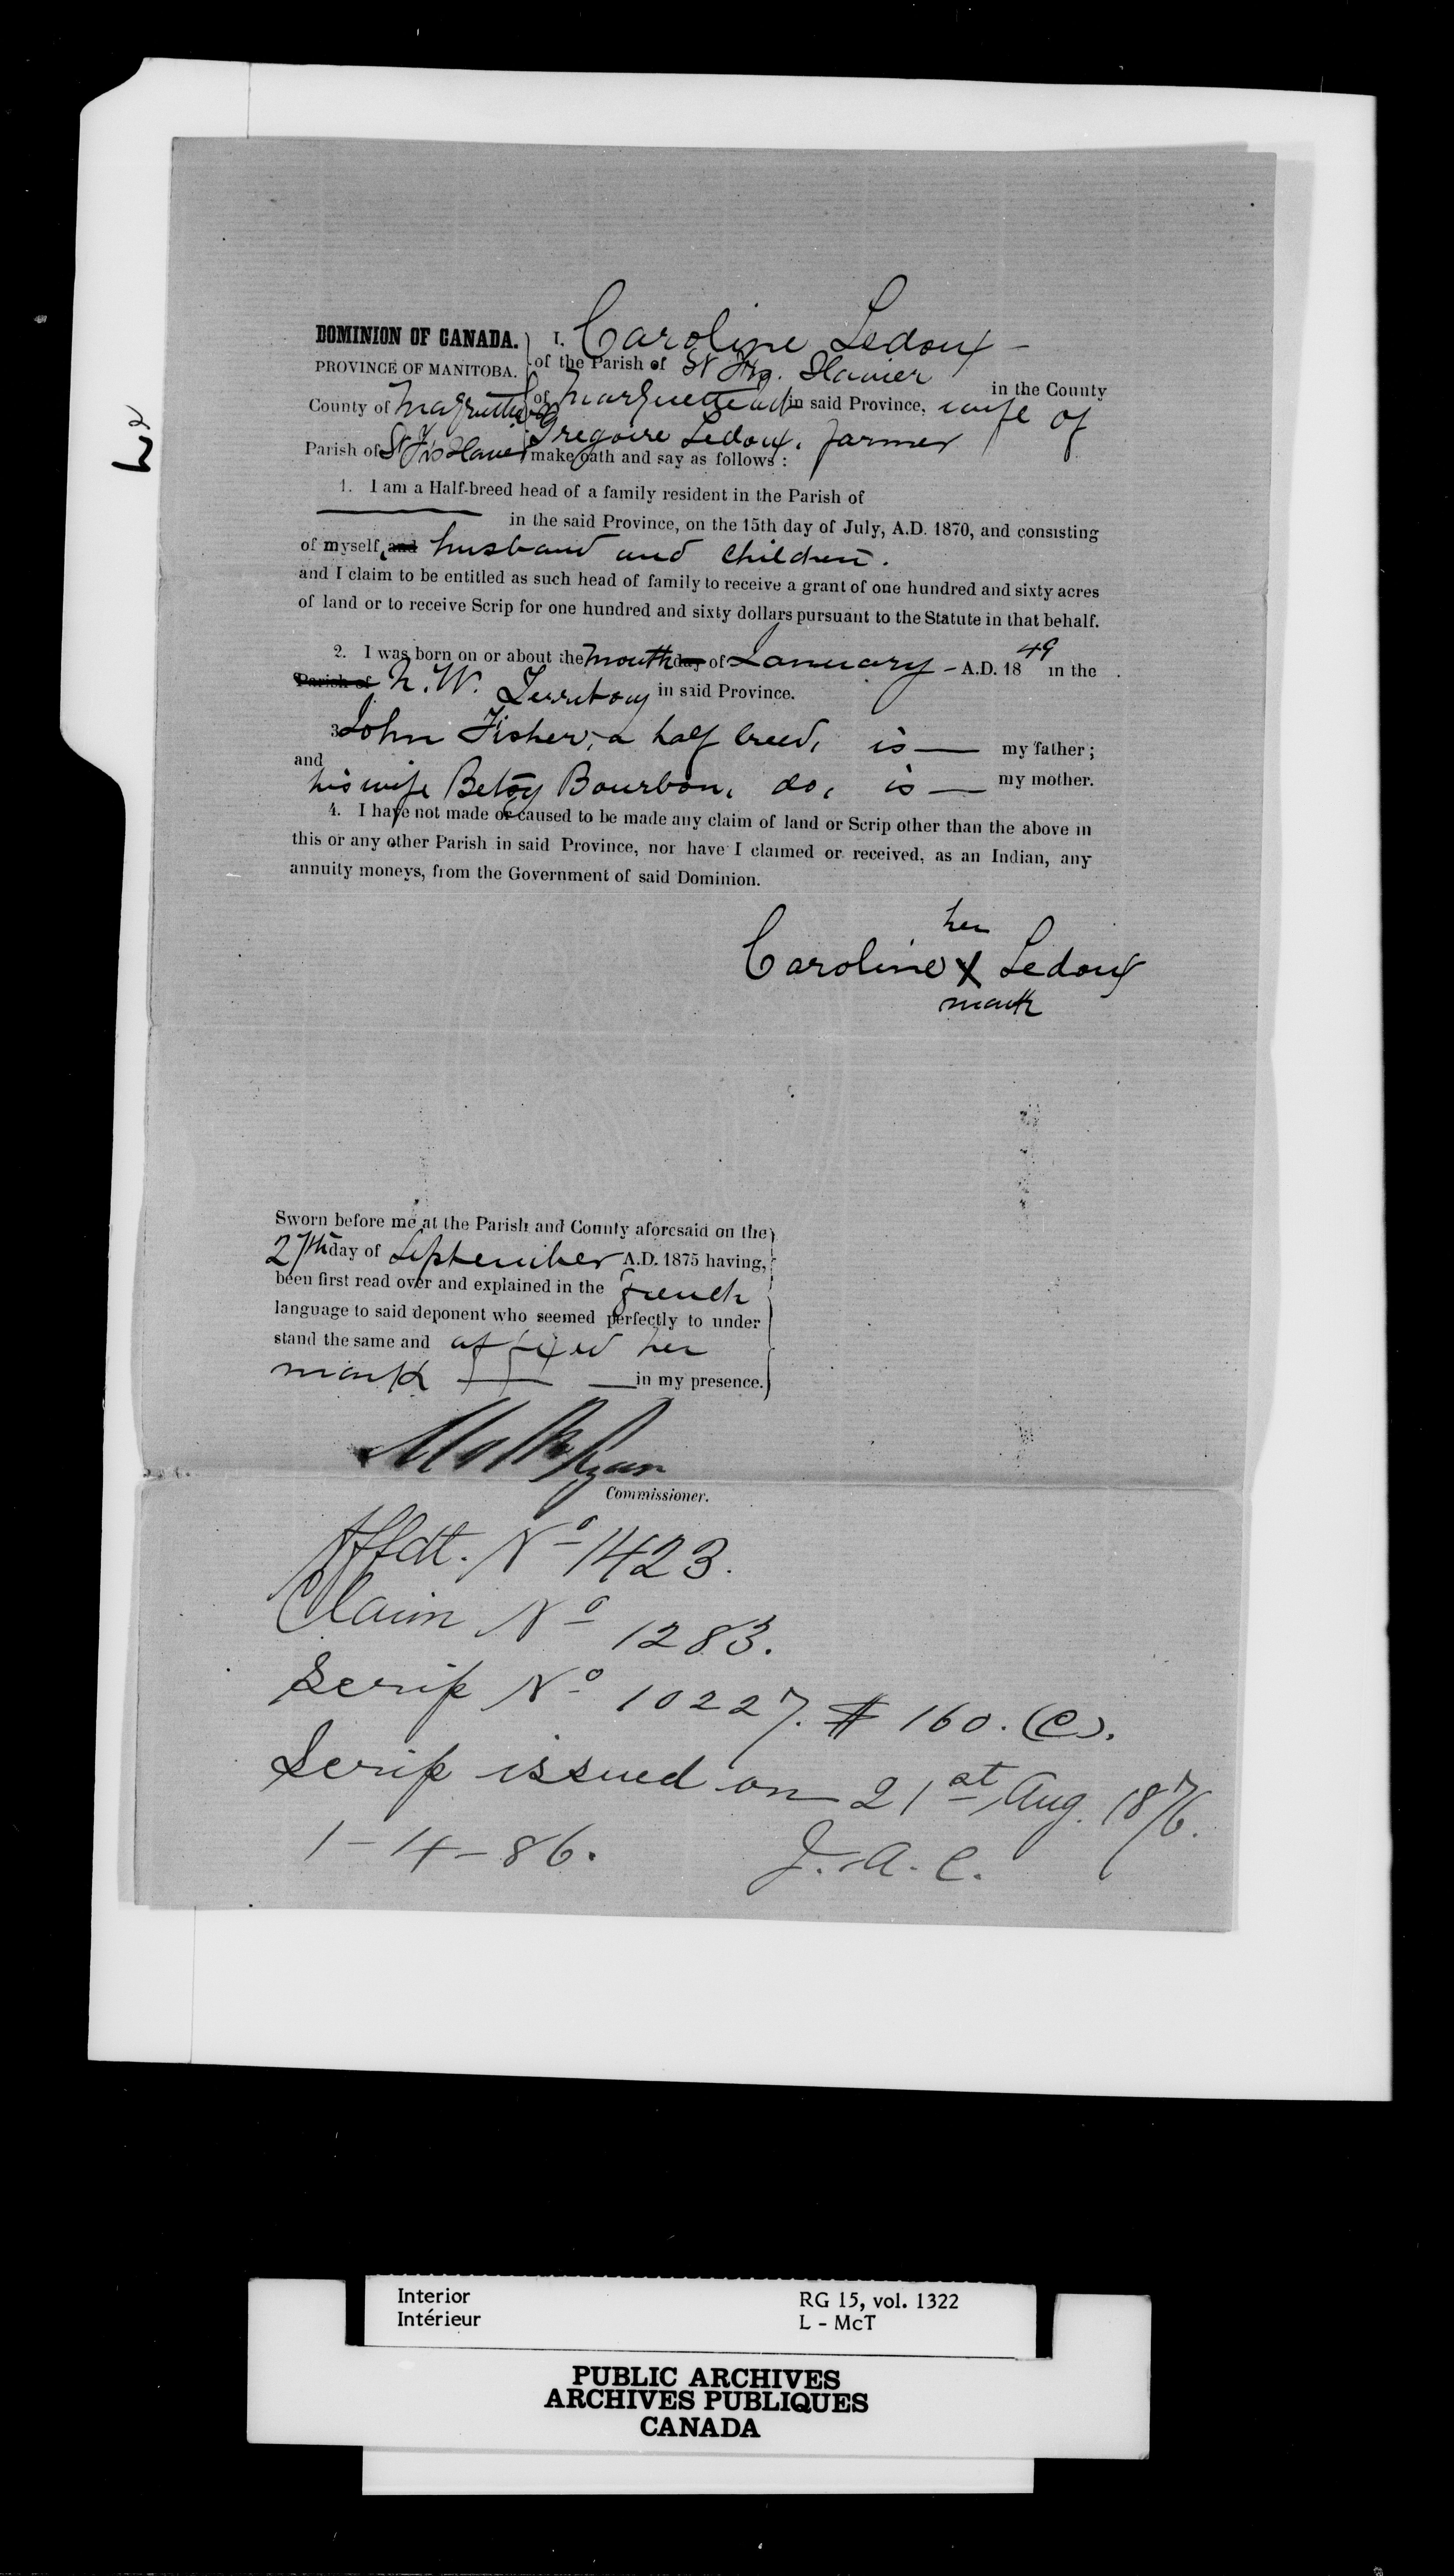 DOMINION OF CANADA. I, Caroline Ledoux -
PROVINCE OF MANITOBA. of the Parish of St Frs. Xavier in the County
County of Marquette of Marquette in said Province, wife of
Gregoire Ledoux, farmer
Parish of St Frs Xavier make oath and say as follows :
1. I am a Half-breed head of a family resident in the Parish of
in the said Province, on the 15th day of July, A.D. 1870, and consisting
of myself, and husband and children.
and I claim to be entitled as such head of family to receive a grant of one hundred and sixty acres
of land or to receive Scrip for one hundred and sixty dollars pursuant to the Statute in that behalf.
2. I was born on or about the month day of January - A.D. 1849 in the
Parish of N. W. Territory in said Province.
3 John Fisher, a half breed, is — my father ;
and
his wife Betsy Bourbon, do, is — my mother.
4. I have not made or caused to be made any claim of land or Scrip other than the above in
this or any other Parish in said Province, nor have I claimed or received, as an Indian, any
annuity moneys, from the Government of said Dominion.
her
Caroline X Ledoux
mark
Sworn before me at the Parish and County aforesaid on the
27th day of September A.D. 1875 having,
been first read over and explained in the french
language to said deponent who seemed perfectly to under
stand the same and affixed her
mark — — in my presence.
Ryan
Commissioner.
Affdt. No 1423.
Claim No 1283.
Scrip No 10227. $160. (C).
Scrip issued on 21st Aug. 1876.
1-4-86. J. A. C.
Interior RG 15, vol. 1322
Intérieur L - McT
PUBLIC ARCHIVES
ARCHIVES PUBLIQUES
CANADA